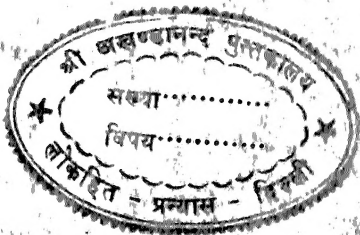 श्री अखण्डानन्द पुस्तकालय
संख्या............
विषय............
लोकहित - प्रन्यास - दिल्ली